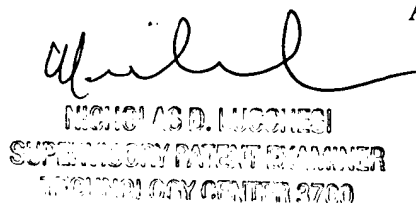 A
NICHOLAS D. LUCCHESI
SUPERVISORY PATENT EXAMINER
TECHNOLOGY CENTER 3700